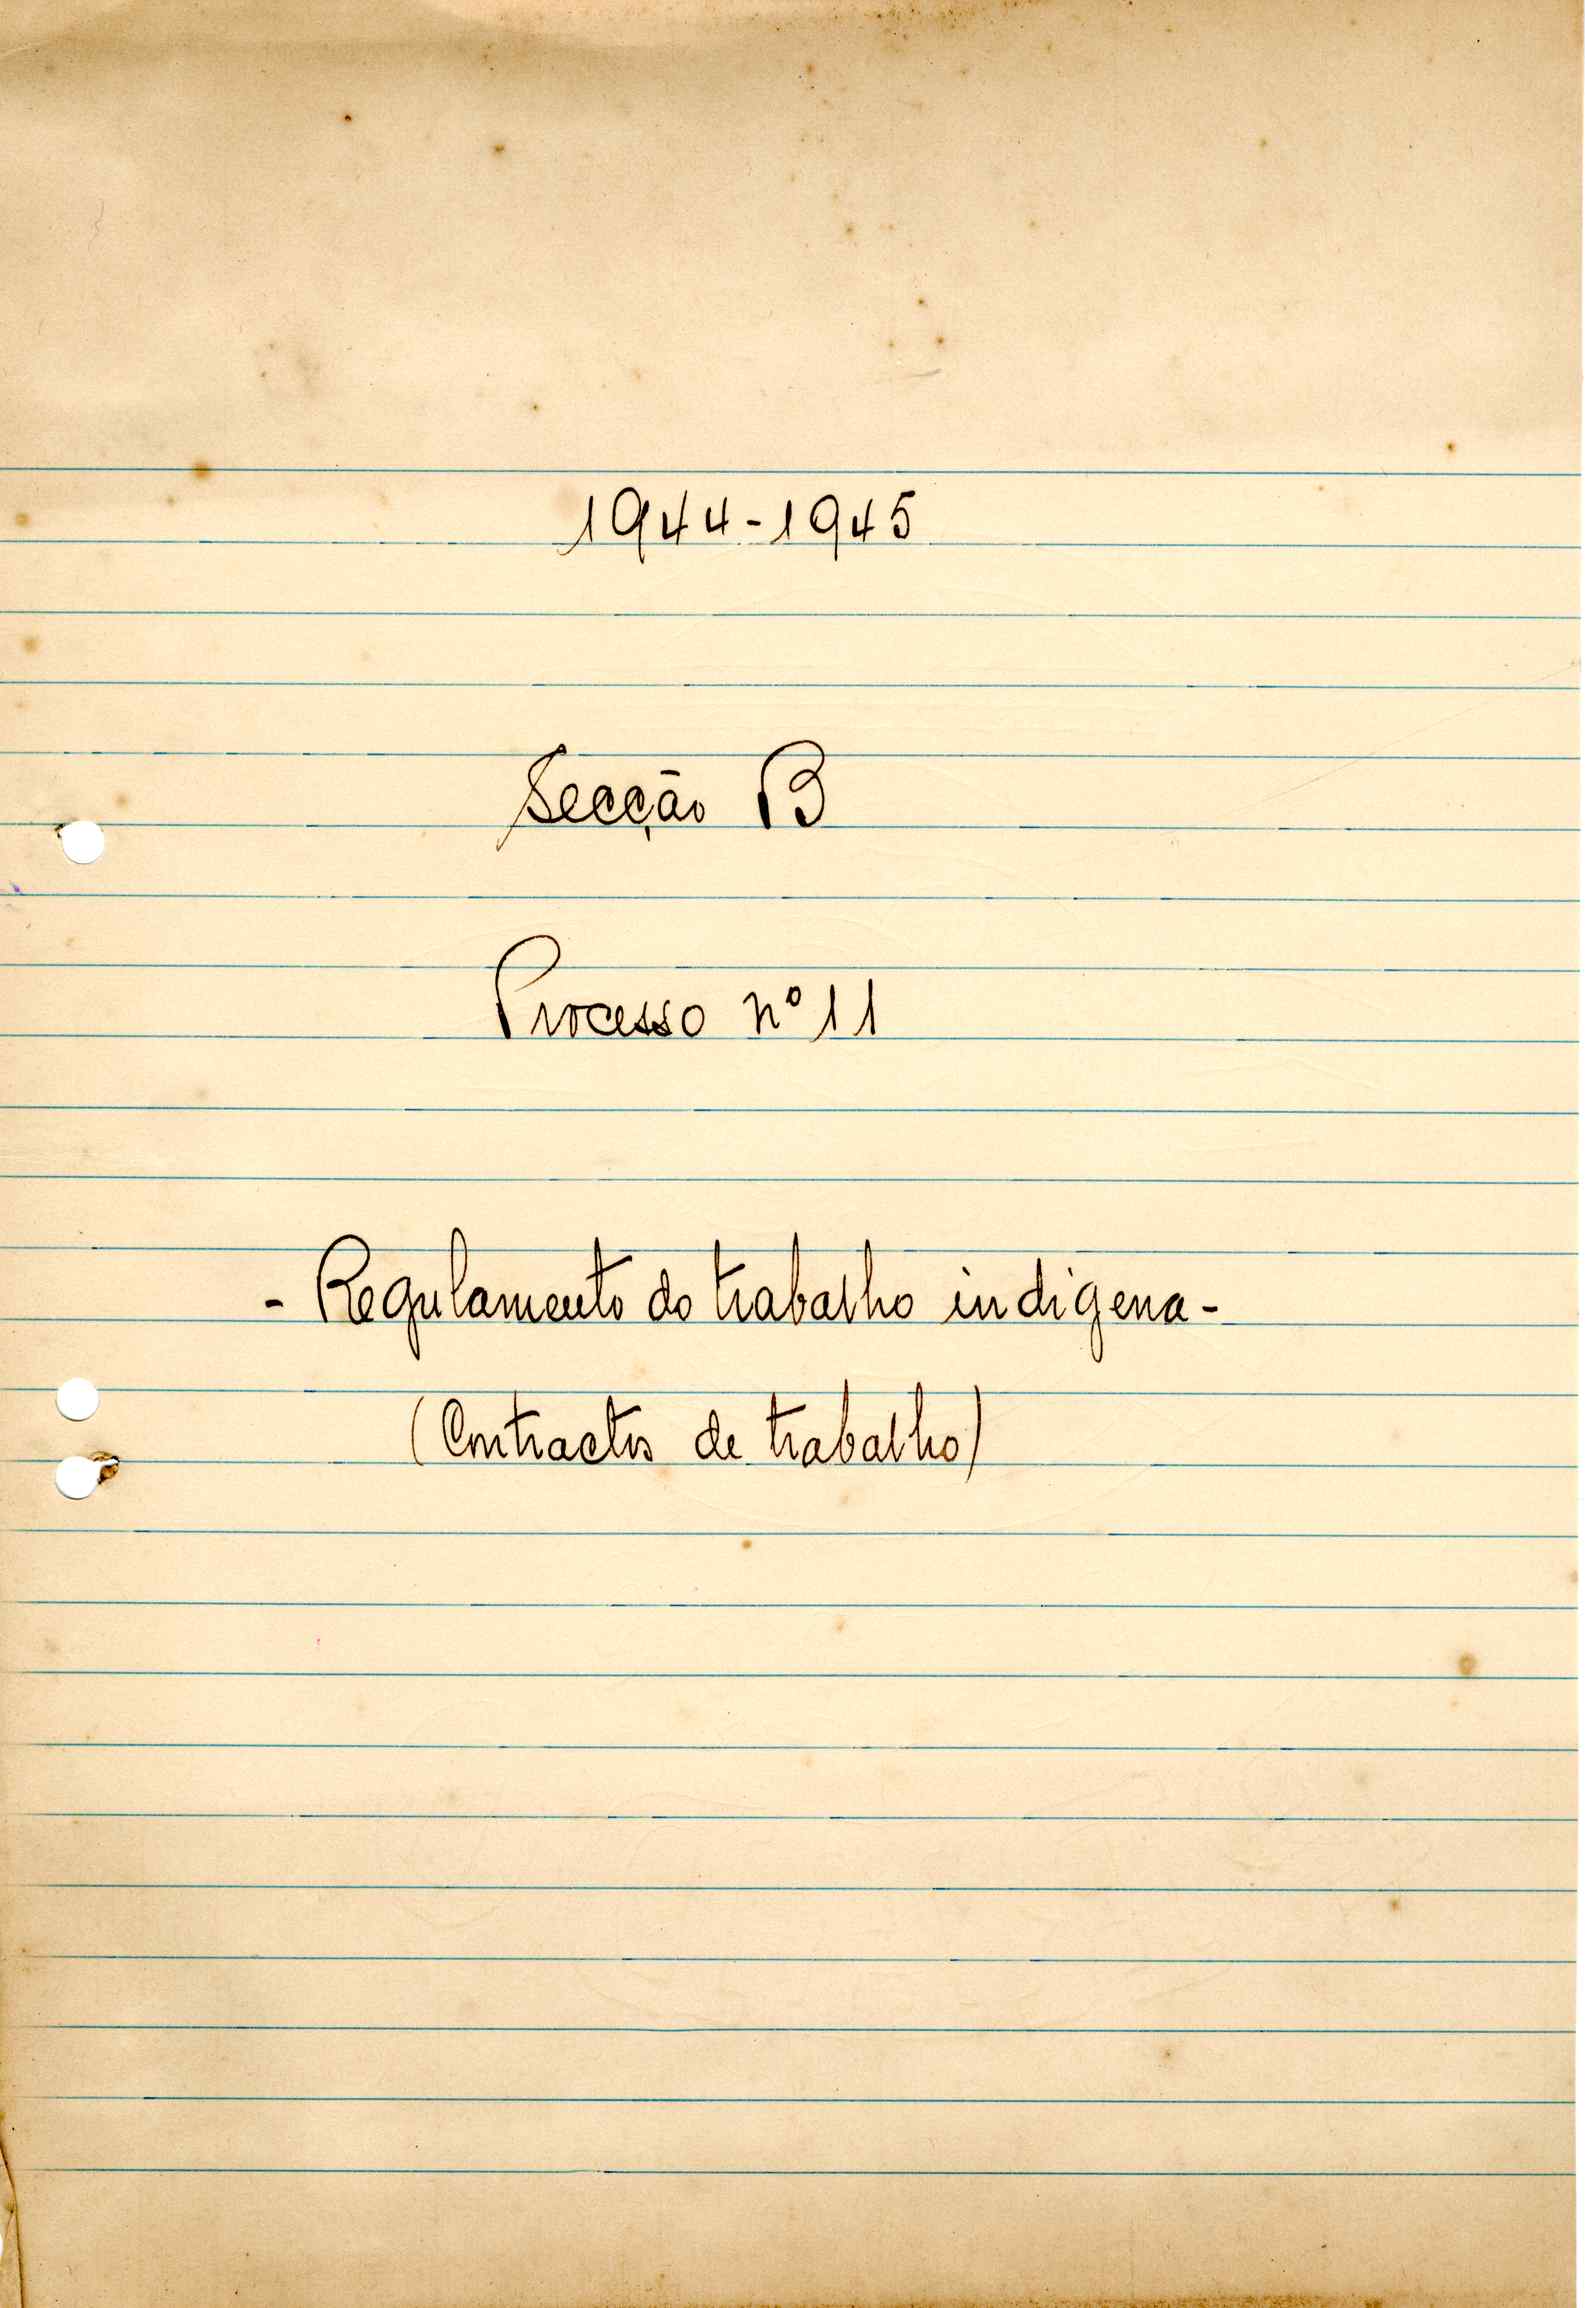 1944-1945
Secção B
Processo nº 11
- Regulamento do trabalho indigena -
(Contractos de trabalho)